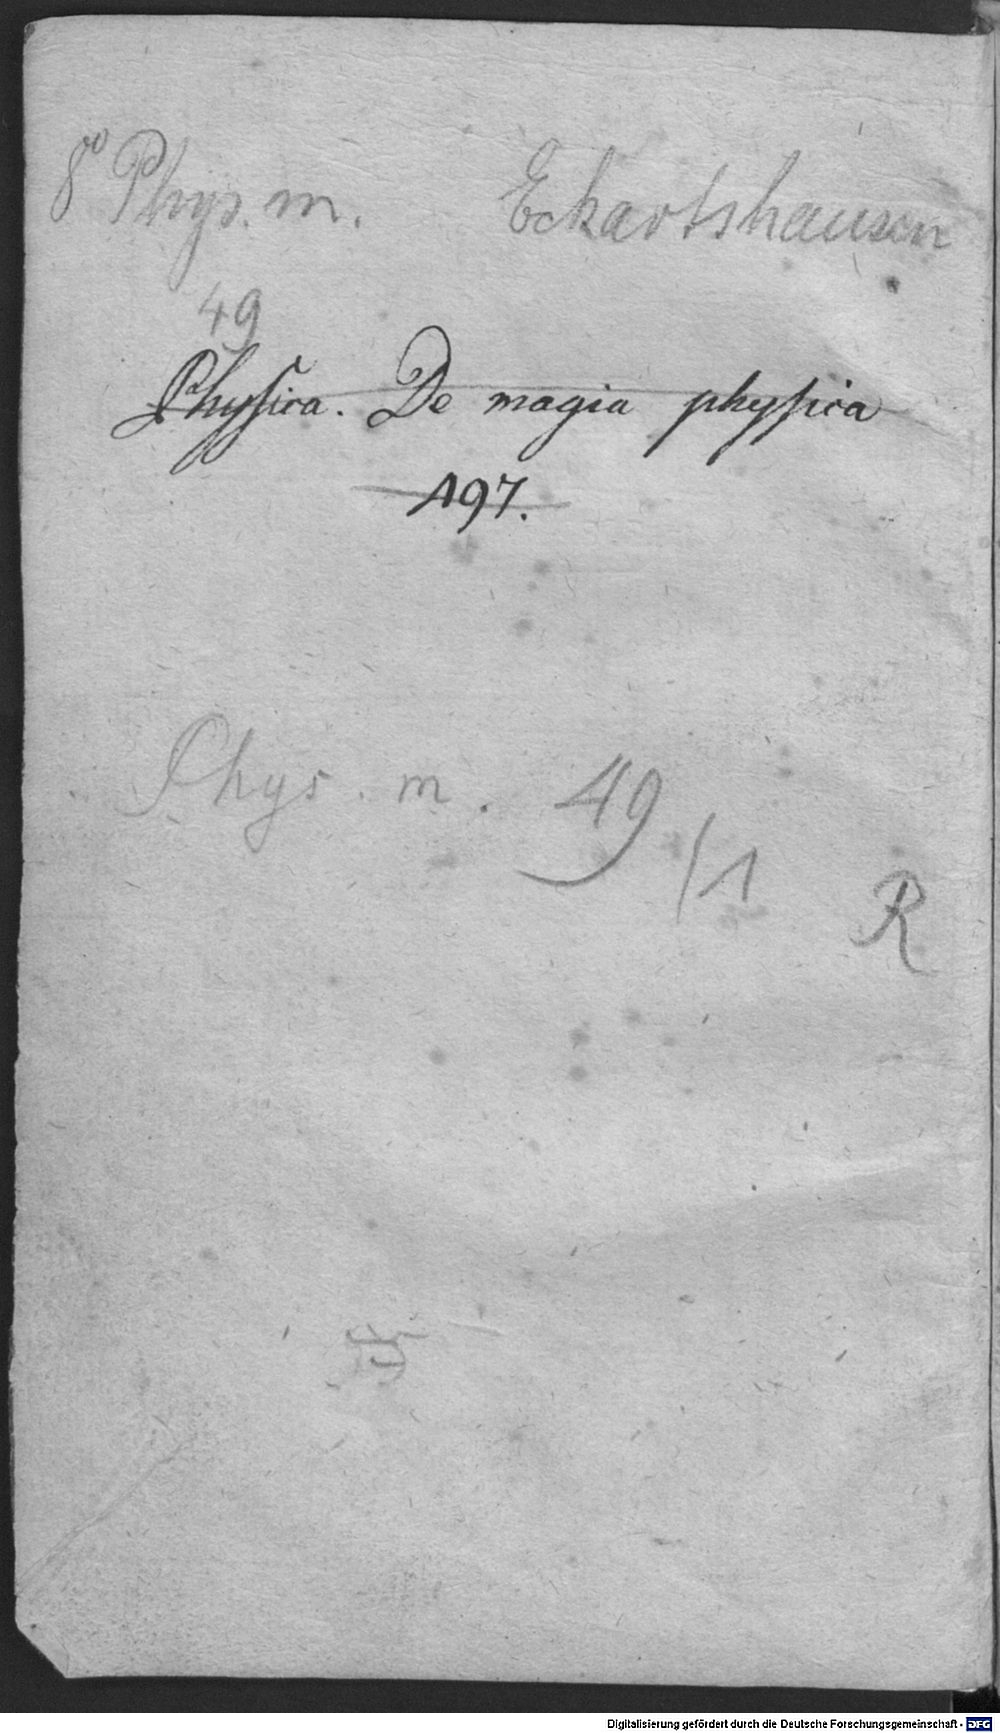 8° Phys. m. Eckartshausen
49
Physica. De magia physica
197.
Phys. m. 49
/1
R
Digitalisierung gefördert durch die Deutsche Forschungsgemeinschaft - DFG